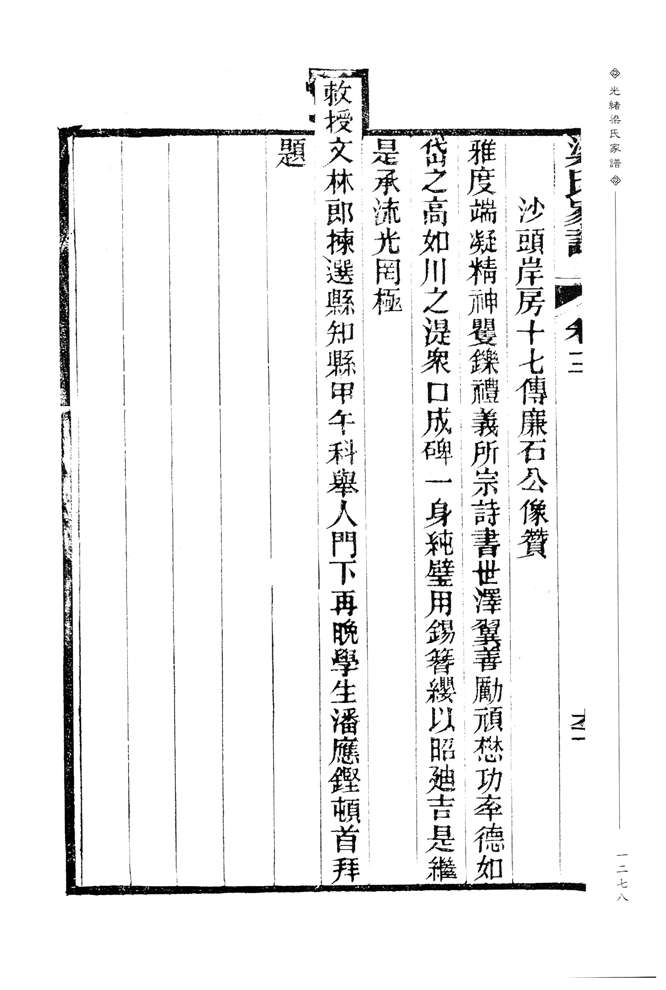 光緒梁氏家譜
一二七八
梁氏家譜 卷三
沙頭岸房十七傳廉石公像贊
雅度端凝精神矍鑠禮義所宗詩書世澤翼善勵頑懋功率德如
岱之高如川之湜衆口成碑一身純璧用錫簪纓以昭迪吉是繼
是承流光罔極
敕授文林郎揀選縣知縣甲午科舉人門下再晚學生潘應鏗頓首拜
題